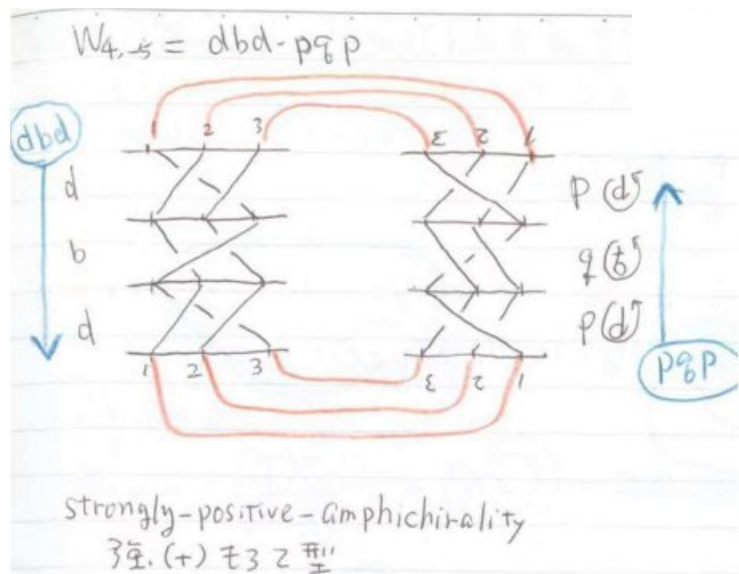 W4,-5 = dbd-pqp
1 2 3 3 2 1
dbd
d p (d)
b q (b)
d p (d)
1 2 3 3 2 1
pqp
strongly-positive-amphichirality
強.(+)もろて型